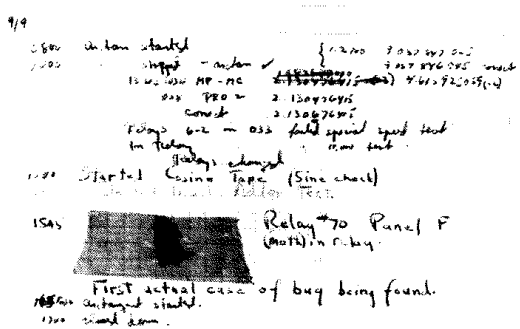 9/9
0800 antan started
1000 stopped - antan ✓ { 1.2700 9.037 847 025
9.037 846 995 correct
13" MP - MC 4.615925059(-2)
033 PRO 2 2.130476415
correct 2.130676415
Relays 6-2 in 033 failed special speed test
in relay 11,000 test.
Relays changed
1100 Started Cosine Tape (Sine check)
Adder Test.
1545 Relay #70 Panel F
(moth) in relay.
First actual case of bug being found.
antangent started.
1700 closed down.